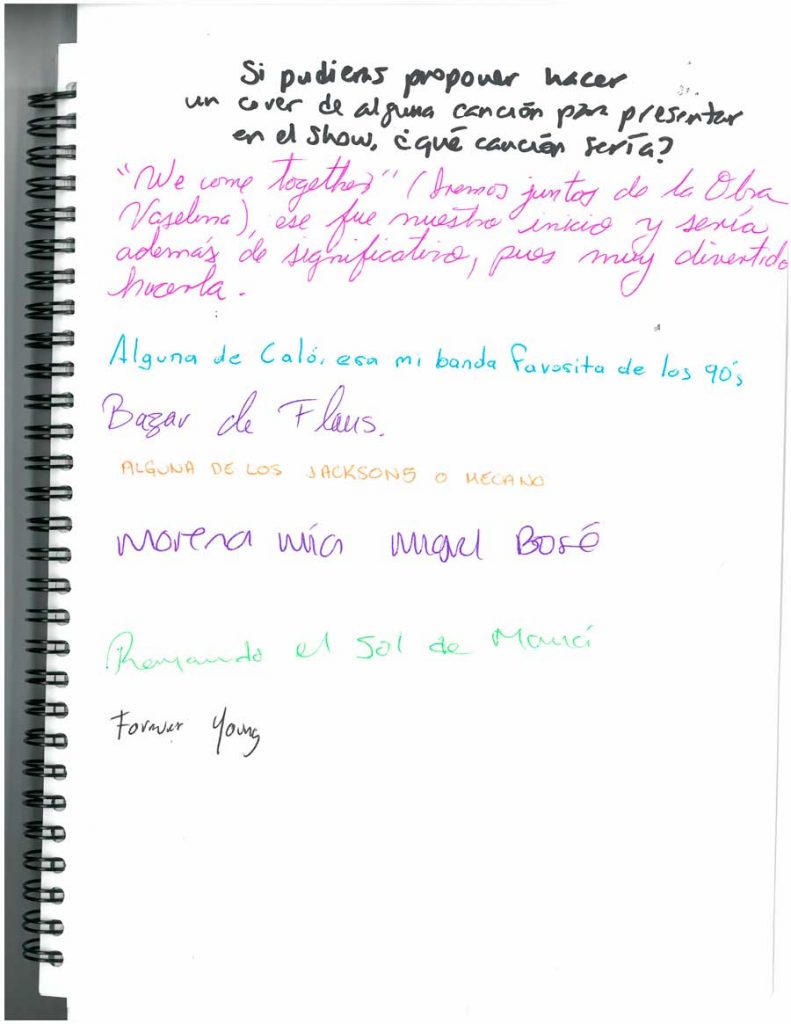 Si pudieras proponer hacer
un cover de alguna canción para presentar
en el show, ¿qué canción sería?
"We come together" (Iremos juntos de la Obra
Vaselina), ese fue nuestro inicio y sería
además de significativo, pues muy divertido
hacerla.
Alguna de Caló, esa mi banda favorita de los 90's
Bazar de Flans.
ALGUNA DE LOS JACKSON5 O MECANO
Morena mía Miguel Bosé
Remando el Sol de
Forever Young